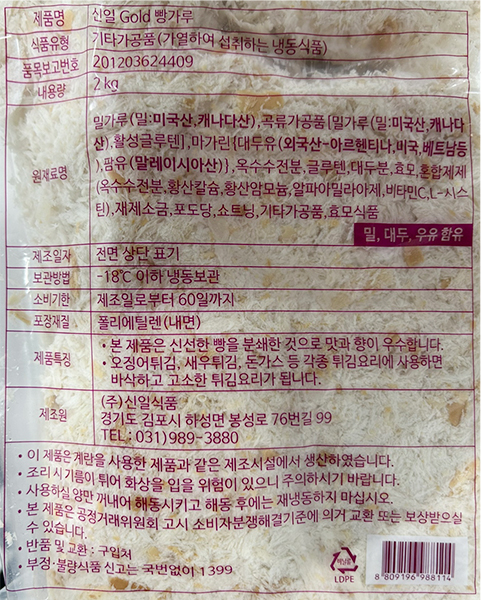 제품명 신일 Gold 빵가루
식품유형 기타가공품(가열하여 섭취하는 냉동식품)
품목보고번호 201203624409
내용량 2kg
밀가루(밀:미국산,캐나다산),곡류가공품{밀가루(밀:미국산,캐나다
산),활성글루텐},마가린{대두유(외국산-아르헨티나,미국,베트남등
),팜유(말레이시아산)},옥수수전분,글루텐,대두분,효모,혼합제제
원재료명
(옥수수전분,황산칼슘,황산암모늄,알파아밀라아제,비타민C,L-시스
틴),재제소금,포도당,쇼트닝,기타가공품,효모식품
밀, 대두, 우유 함유
제조일자 전면 상단 표기
보관방법 -18℃ 이하 냉동보관
소비기한 제조일로부터 60일까지
포장재질 폴리에틸렌(내면)
• 본 제품은 신선한 빵을 분쇄한 것으로 맛과 향이 우수합니다.
제품특징 • 오징어튀김, 새우튀김, 돈가스 등 각종 튀김요리에 사용하면
바삭하고 고소한 튀김요리가 됩니다.
(주)신일식품
제조원 경기도 김포시 하성면 봉성로 76번길 99
TEL : 031)989-3880
• 이 제품은 계란을 사용한 제품과 같은 제조시설에서 생산하였습니다.
• 조리 시 기름이 튀어 화상을 입을 위험이 있으니 주의하시기 바랍니다.
• 사용하실 양만 꺼내어 해동시키고 해동 후에는 재냉동하지 마십시오.
• 본 제품은 공정거래위원회 고시 소비자분쟁해결기준에 의거 교환 또는 보상받으실
수 있습니다.
• 반품 및 교환 : 구입처
• 부정·불량식품 신고는 국번없이 1399
비닐류
LDPE
8 809196 988114